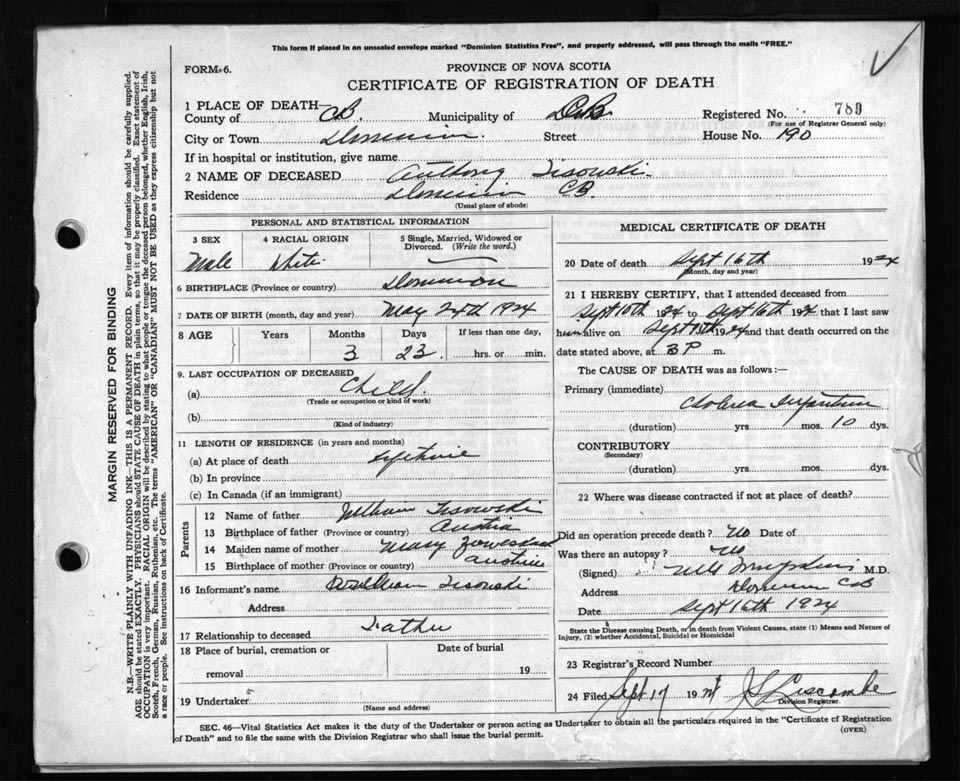 This form if placed in an unsealed envelope marked "Dominion Statistics Free", and properly addressed, will pass through the mails "FREE."
FORM 6.
PROVINCE OF NOVA SCOTIA
CERTIFICATE OF REGISTRATION OF DEATH
1 PLACE OF DEATH
County of CB. Municipality of Registered No. 789
(For use of Registrar General only)
City or Town Dominion. Street House No. 190
If in hospital or institution, give name
2 NAME OF DECEASED Anthony Tisowski.
Residence Dominion CB.
(Usual place of abode)
PERSONAL AND STATISTICAL INFORMATION
3 SEX 4 RACIAL ORIGIN 5 Single, Married, Widowed or Divorced. (Write the word.)
Male White
6 BIRTHPLACE (Province or country) Dominion
7 DATE OF BIRTH (month, day and year) May 24th 1924
8 AGE Years Months Days If less than one day,
3 23. hrs. or min.
9. LAST OCCUPATION OF DECEASED
(a) Child.
(Trade or occupation or kind of work)
(b)
(Kind of industry)
11 LENGTH OF RESIDENCE (in years and months)
(a) At place of death Lifetime
(b) In province
(c) In Canada (if an immigrant)
Parents
12 Name of father William Tisowski
13 Birthplace of father (Province or country) Austria
14 Maiden name of mother Mary
15 Birthplace of mother (Province or country) Austria
16 Informant's name William Tisowski
Address
17 Relationship to deceased Father
18 Place of burial, cremation or Date of burial
removal 19
19 Undertaker
(Name and address)
MEDICAL CERTIFICATE OF DEATH
20 Date of death Sept 16th 1924
(Month, day and year)
21 I HEREBY CERTIFY, that I attended deceased from
Sept 10th 1924 to Sept 16th 1924 that I last saw
him alive on Sept 1924 and that death occurred on the
date stated above, at P m.
The CAUSE OF DEATH was as follows:—
Primary (immediate)
Cholera Infantum
(duration) yrs. mos. 10 dys.
CONTRIBUTORY
(Secondary)
(duration) yrs. mos. dys.
22 Where was disease contracted if not at place of death?
Did an operation precede death? No Date of
Was there an autopsy? No
(Signed) M.D.
Address Dominion CB
Date Sept 16th 1924
State the Disease causing Death, or in death from Violent Causes, state (1) Means and Nature of
Injury, (2) whether Accidental, Suicidal or Homicidal
23 Registrar's Record Number
24 Filed Sept 17 1924 J S Liscombe
Division Registrar.
SEC. 46—Vital Statistics Act makes it the duty of the Undertaker or person acting as Undertaker to obtain all the particulars required in the "Certificate of Registration
of Death" and to file the same with the Division Registrar who shall issue the burial permit.
(OVER)
MARGIN RESERVED FOR BINDING
N.B.—WRITE PLAINLY WITH UNFADING INK—THIS IS A PERMANENT RECORD. Every item of information should be carefully supplied.
AGE should be stated EXACTLY. PHYSICIANS should STATE CAUSE OF DEATH in plain terms, so that it may be properly classified. Exact statement of
OCCUPATION is very important. RACIAL ORIGIN will be described by stating to what people or tongue the deceased person belonged, whether English, Irish,
Scotch, French, German, Russian, Ruthenian, etc. The terms "AMERICAN" or "CANADIAN" MUST NOT BE USED as they express citizenship but not
a race or people. See instructions on back of Certificate.